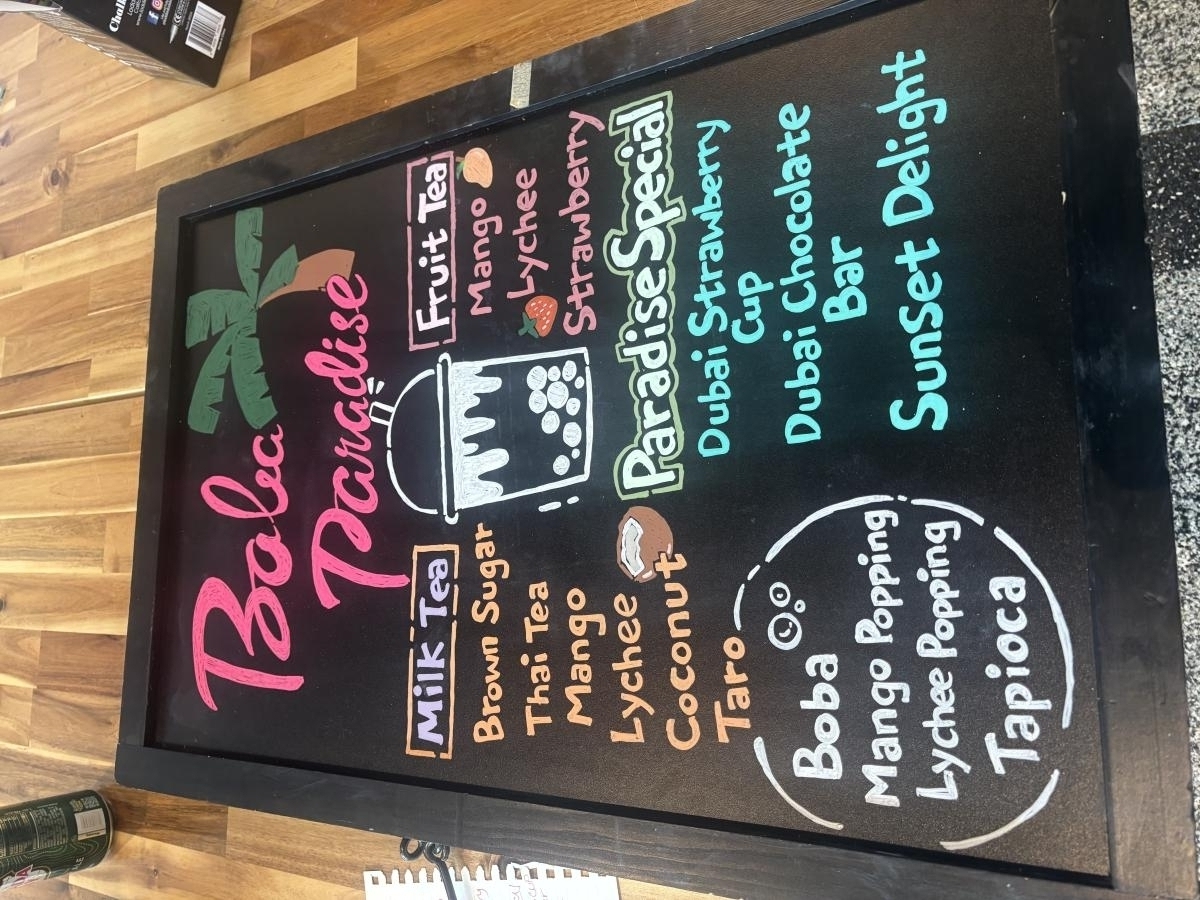 Boba
Paradise
Milk Tea
Brown Sugar
Thai Tea
Mango
Lychee
Coconut
Taro
Fruit Tea
Mango
Lychee
Strawberry
Paradise Special
Dubai Strawberry
Cup
Dubai Chocolate
Bar
Sunset Delight
Boba
Mango Popping
Lychee Popping
Tapioca